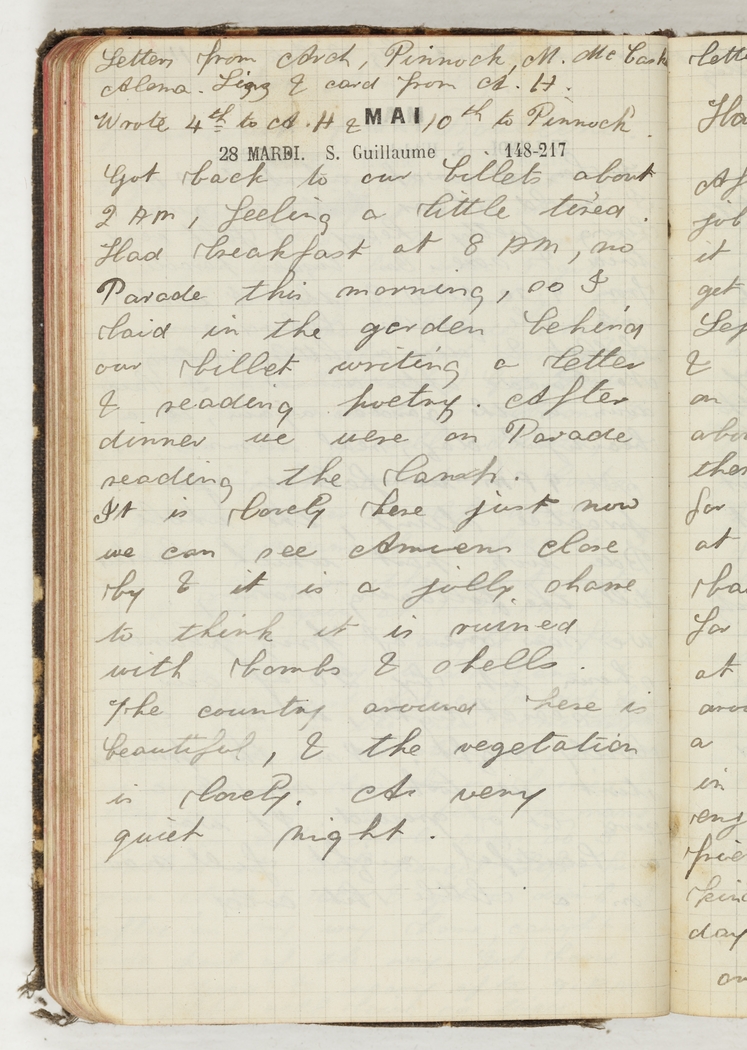 Letters from Arch, Pinnock, M. McCask
Alema. Ling & card from A. H.
Wrote 4th to A. H & 10th to Pinnock
MAI
28 MARDI. S. Guillaume 148-217
Got back to our billets about
2 AM, feeling a little tired.
Had breakfast at 8 AM, no
Parade this morning, so I
laid in the garden behind
our billet writing a letter
& reading poetry. After
dinner we were on Parade
reading the
It is lovely here just now
we can see Amiens close
by & it is a jolly shame
to think it is ruined
with bombs & shells.
The country around here is
beautiful, & the vegetation
is lovely. A very
quiet night.
lette
Had
Af
job
it
get
Lef
&
on
abou
ther
for
at
ba
for
at
arou
a
in
eng
frie
kind
day
on